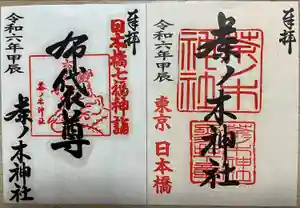 奉拝
日本橋七福神詣
布袋尊
茶ノ木神社
令和六年甲辰
茶ノ木神社
奉拝
茶ノ木神社
茶ノ木神社
東京 日本橋
令和六年甲辰